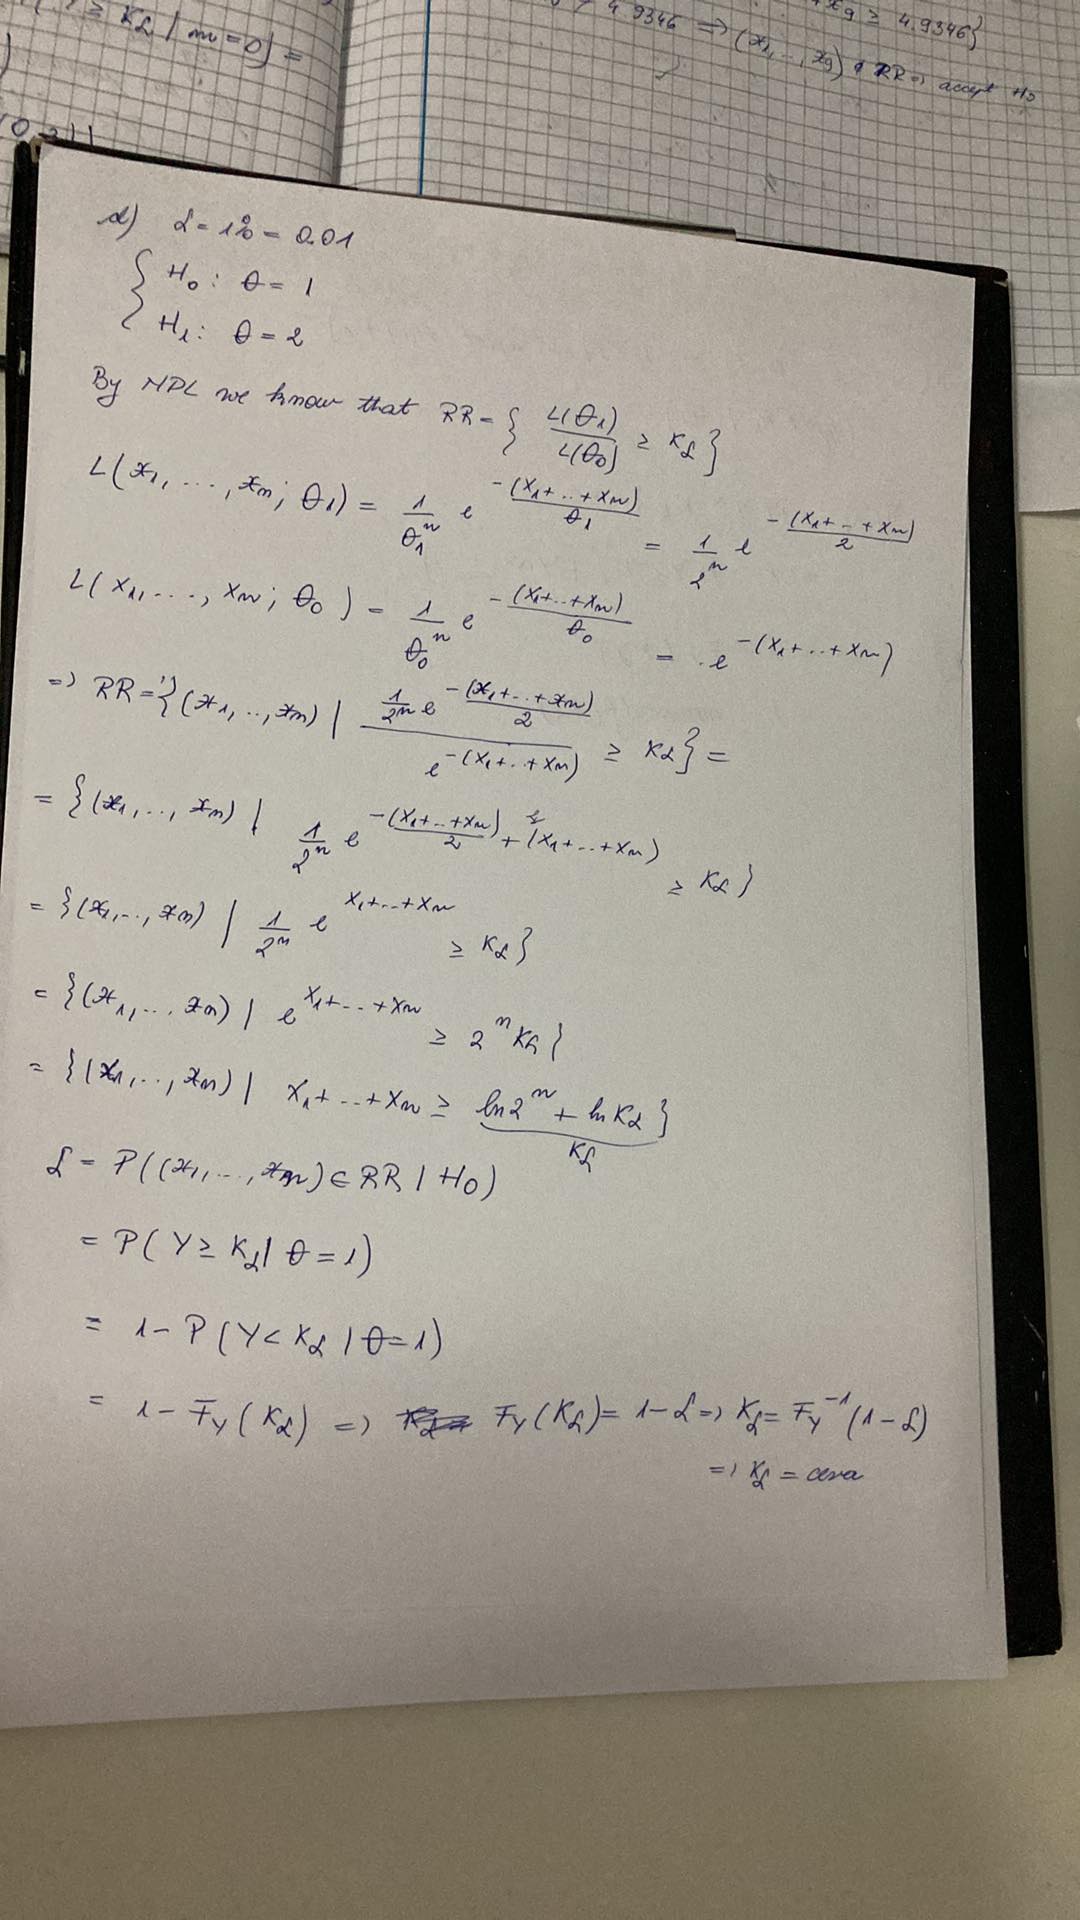 ≥ K_α | m=0) =
4.9346 => (x_1, .., x_9) ∉ RR => accept H_0
x_9 ≥ 4.9346}
d) α = 1% = 0.01
{ H_0 : θ = 1
H_1 : θ = 2
By NPL we know that RR = { L(θ_1)/L(θ_0) ≥ K_α }
L(x_1, ..., x_n; θ_1) = 1/θ_1^n e^{-(x_1+..+x_n)/θ_1} = 1/2^n e^{-(x_1+..+x_n)/2}
L(x_1, ..., x_n; θ_0) = 1/θ_0^n e^{-(x_1+..+x_n)/θ_0} = . e^{-(x_1+..+x_n)}
=> RR = {(x_1, .., x_n) | (1/2^n e^{-(x_1+..+x_n)/2})/(e^{-(x_1+..+x_n)}) ≥ K_α} =
= {(x_1, .., x_n) | 1/2^n e^{-(x_1+..+x_n)/2 + (x_1+..+x_n)} ≥ K_α}
= {(x_1, .., x_n) | 1/2^n e^{x_1+..+x_n} ≥ K_α}
= {(x_1, ... x_n) | e^{x_1+..+x_n} ≥ 2^n K_α}
= {(x_1, .., x_n) | x_1+..+x_n ≥ ln2^n + lnK_α}
K_α
α = P((x_1, .., x_n) ∈ RR | H_0)
= P(Y ≥ K_α | θ = 1)
= 1 - P(Y < K_α | θ = 1)
= 1 - F_Y(K_α) => F_Y(K_α) = 1 - α => K_α = F_Y^{-1}(1 - α)
=> K_α = ceva